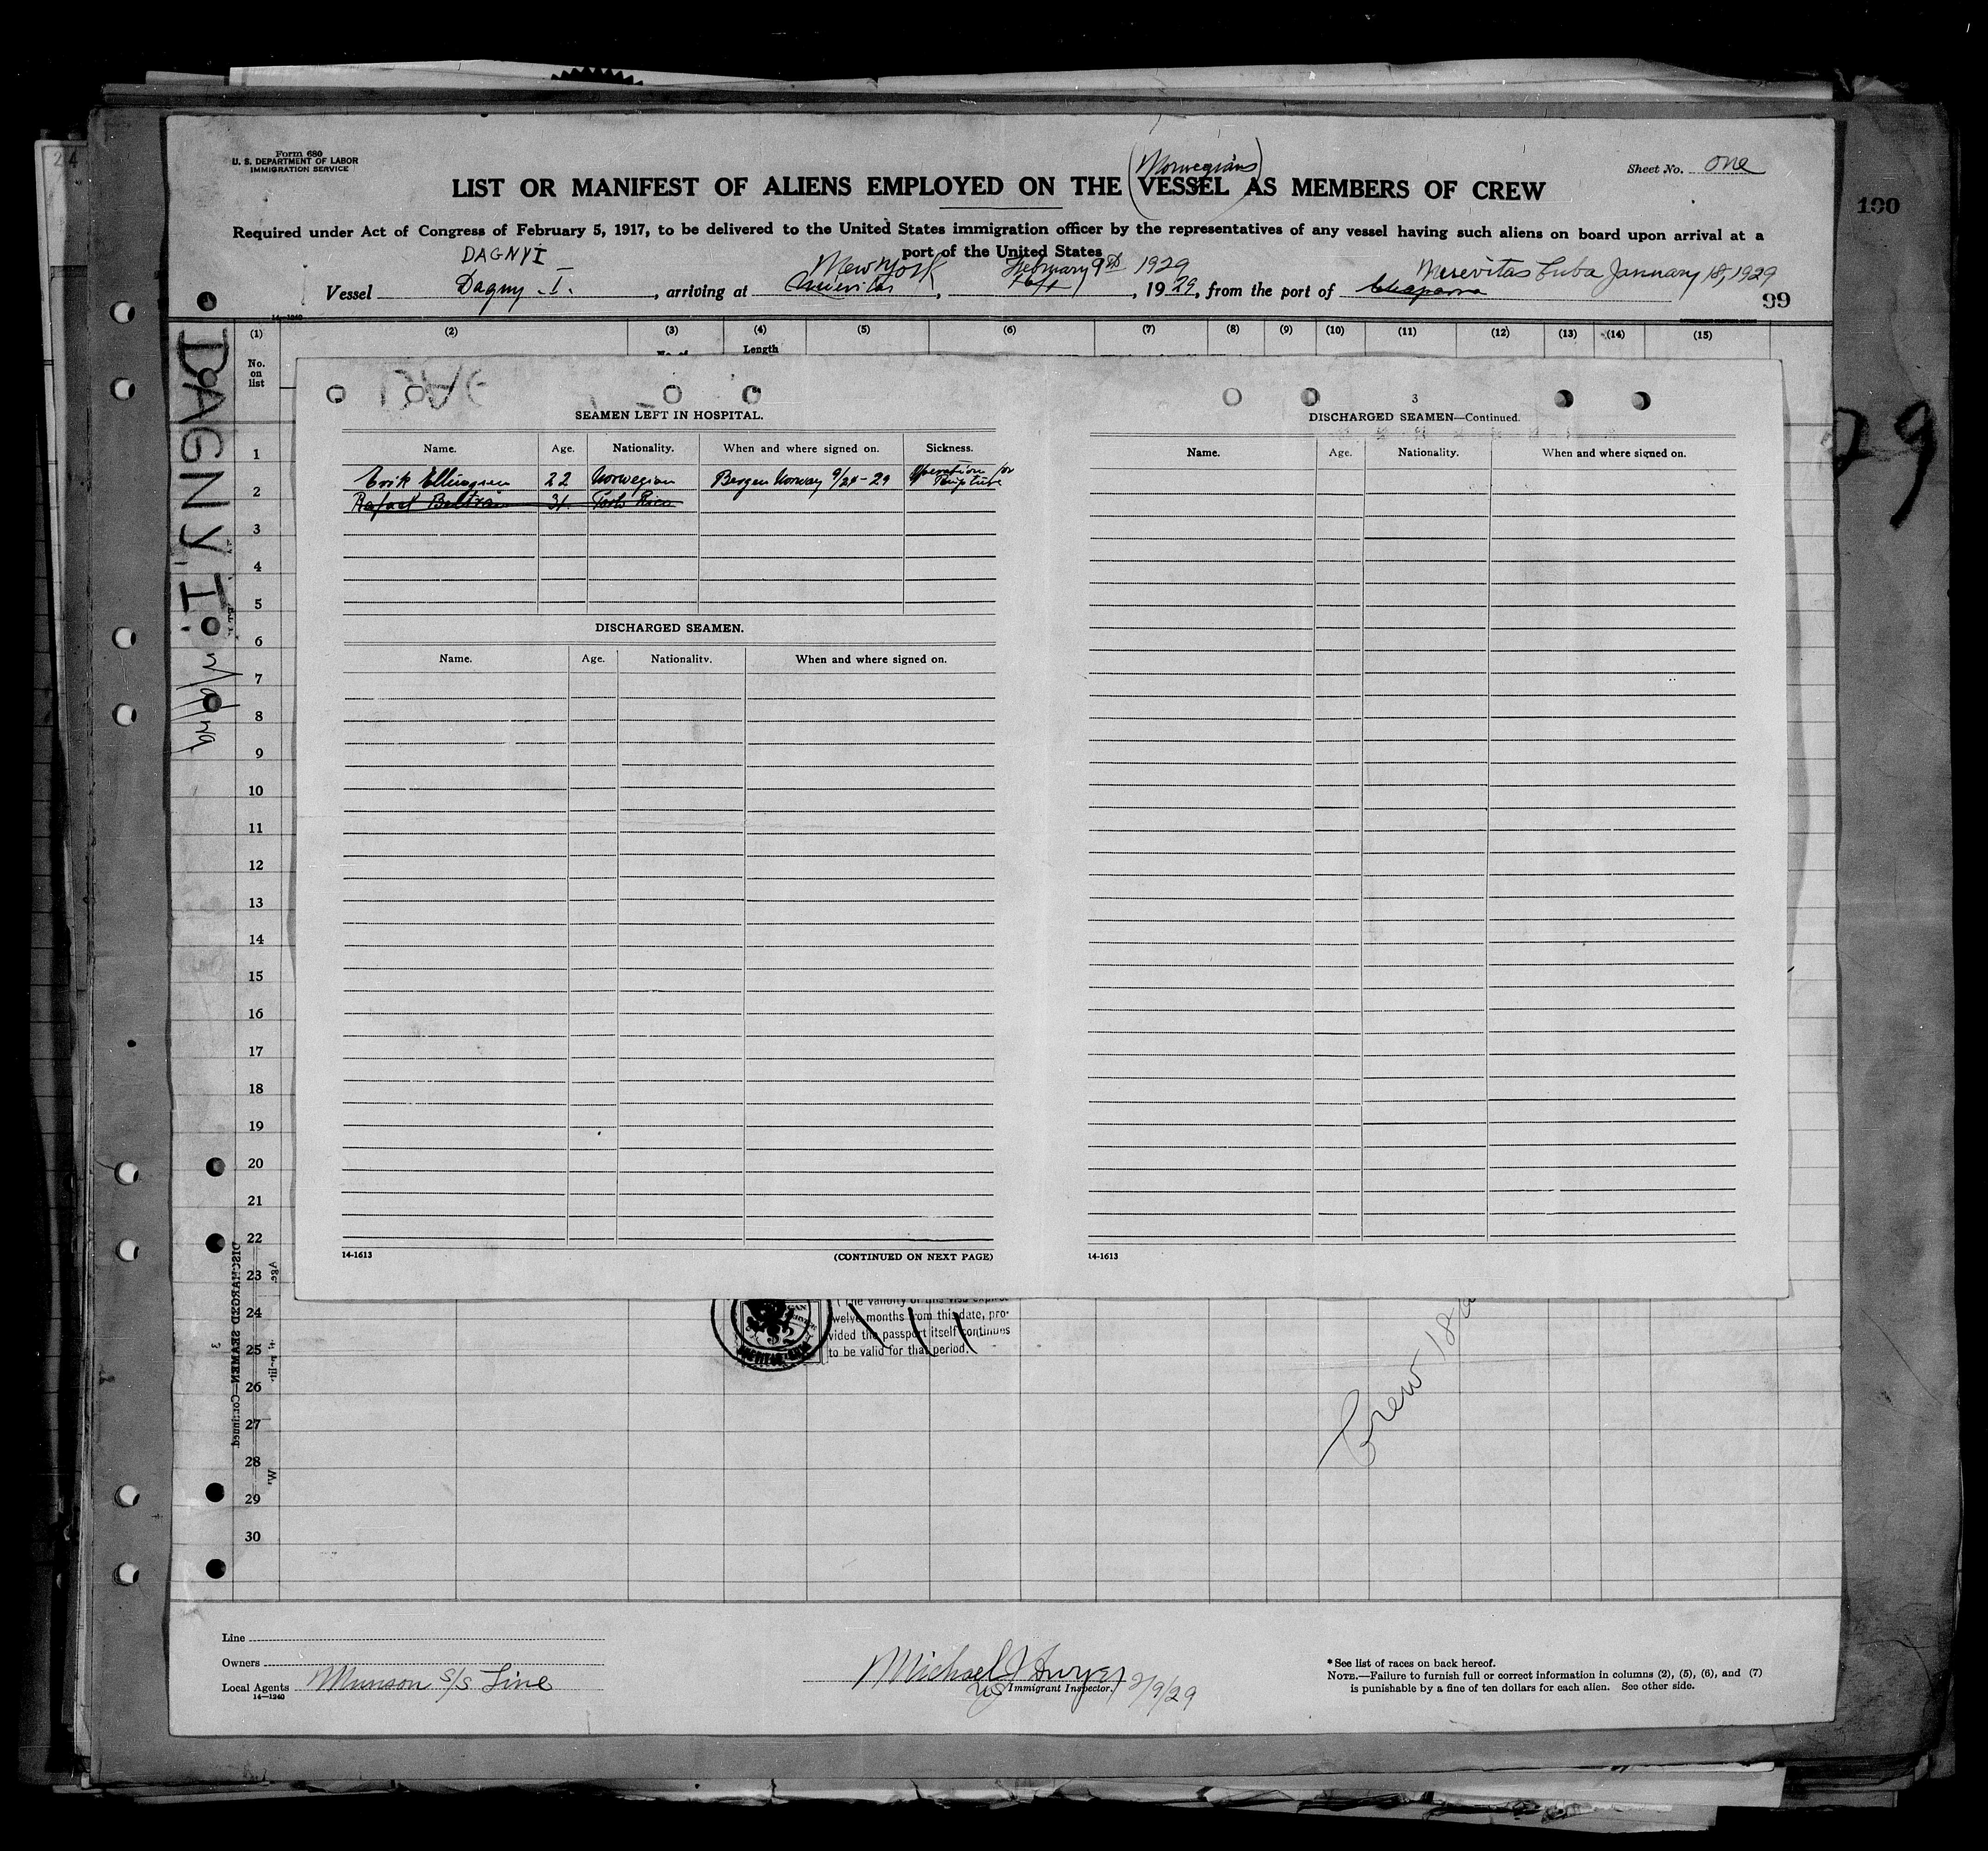 Form 680
U. S. DEPARTMENT OF LABOR
IMMIGRATION SERVICE
Sheet No. one
(Norwegians)
LIST OR MANIFEST OF ALIENS EMPLOYED ON THE VESSEL AS MEMBERS OF CREW
100
Required under Act of Congress of February 5, 1917, to be delivered to the United States immigration officer by the representatives of any vessel having such aliens on board upon arrival at a
port of the United States
DAGNY I New York February 9th 1929 Nuevitas Cuba January 18, 1929
Vessel Dagny - I., arriving at Nuevitas, 1929, from the port of Chaparra
99
14-1240
(1) (2) (3) (4) (5) (6) (7) (8) (9) (10) (11) (12) (13) (14) (15)
Length
No.
on
list
DAGNY I.
29
3
SEAMEN LEFT IN HOSPITAL.
DISCHARGED SEAMEN—Continued.
Name. Age. Nationality. When and where signed on. Sickness.
Name. Age. Nationality. When and where signed on.
Erik Ellingsen 22 Norwegian Bergen Norway 9/24-29 Operation for Rupture
Rafael Beltran 31 Porto Rico
DISCHARGED SEAMEN.
Name. Age. Nationality. When and where signed on.
1
2
3
4
5
6
7
8
9
10
11
12
13
14
15
16
17
18
19
20
21
22
23
24
25
26
27
28
29
30
14-1613
(CONTINUED ON NEXT PAGE)
14-1613
DISCHARGED SEAMEN—Continued.
3
The validity of this visa expires
twelve months from this date, pro-
vided the passport itself continues
to be valid for that period.
Crew 18
Line
Owners
Local Agents Munson S/S Line
14—1240
Michael J Dwyer
US Immigrant Inspector. 2/9/29
* See list of races on back hereof.
NOTE.—Failure to furnish full or correct information in columns (2), (5), (6), and (7)
is punishable by a fine of ten dollars for each alien. See other side.